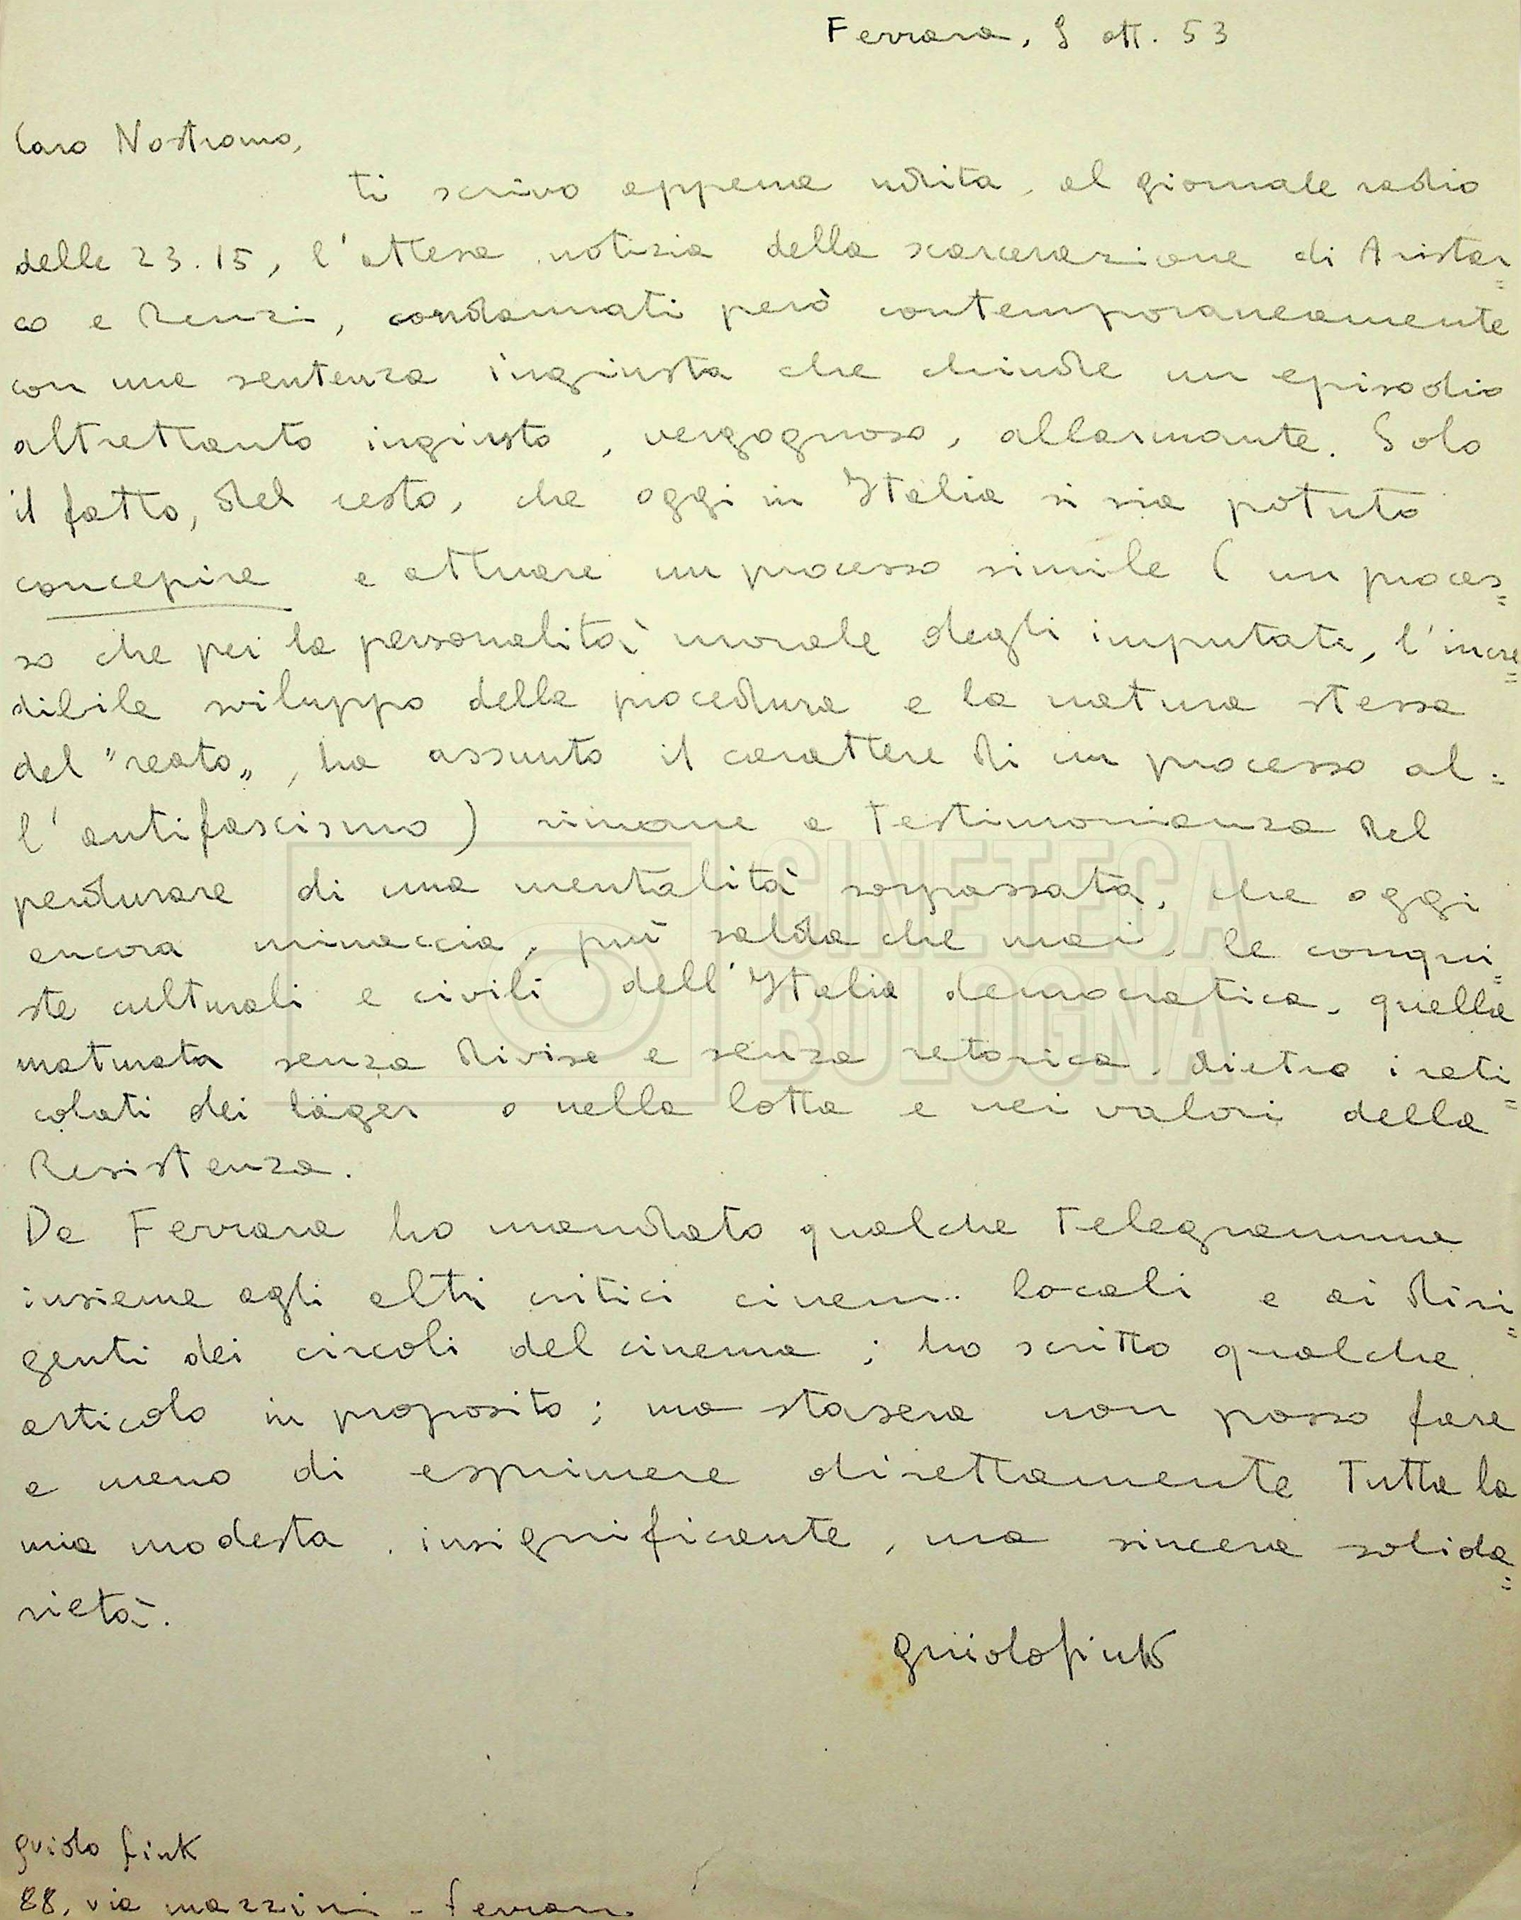 Ferrara, 9 ott. 53
Caro Nostromo,
ti scrivo appena udita, al giornale radio
delle 23.15, l'attesa notizia della scarcerazione di Aristar=
co e Renzi, condannati però contemporaneamente
con una sentenza ingiusta che chiude un episodio
altrettanto ingiusto, vergognoso, allarmante. Solo
il fatto, del resto, che oggi in Italia si sia potuto
concepire e attuare un processo simile (un proces=
so che per la personalità morale degli imputati, l'incre=
dibile sviluppo della procedura e la natura stessa
del "reato", ha assunto il carattere di un processo al=
l'antifascismo) rimane a testimonianza del
perdurare di una mentalità sorpassata, che oggi
ancora minaccia, più salda che mai, le conqui=
ste culturali e civili dell'Italia democratica, quella
maturata senza divise e senza retorica, dietro i reti=
colati dei läger o nella lotta e nei valori della
Resistenza.
Da Ferrara ho mandato qualche telegramma
insieme agli altri critici cinem. locali e ai diri=
genti dei circoli del cinema; ho scritto qualche
articolo in proposito; ma stasera non posso fare
a meno di esprimere direttamente tutta la
mia modesta, insignificante, ma sincera solida=
rietà.
guidofink
guido fink
88, via mazzini - ferrara
CINETECA
BOLOGNA